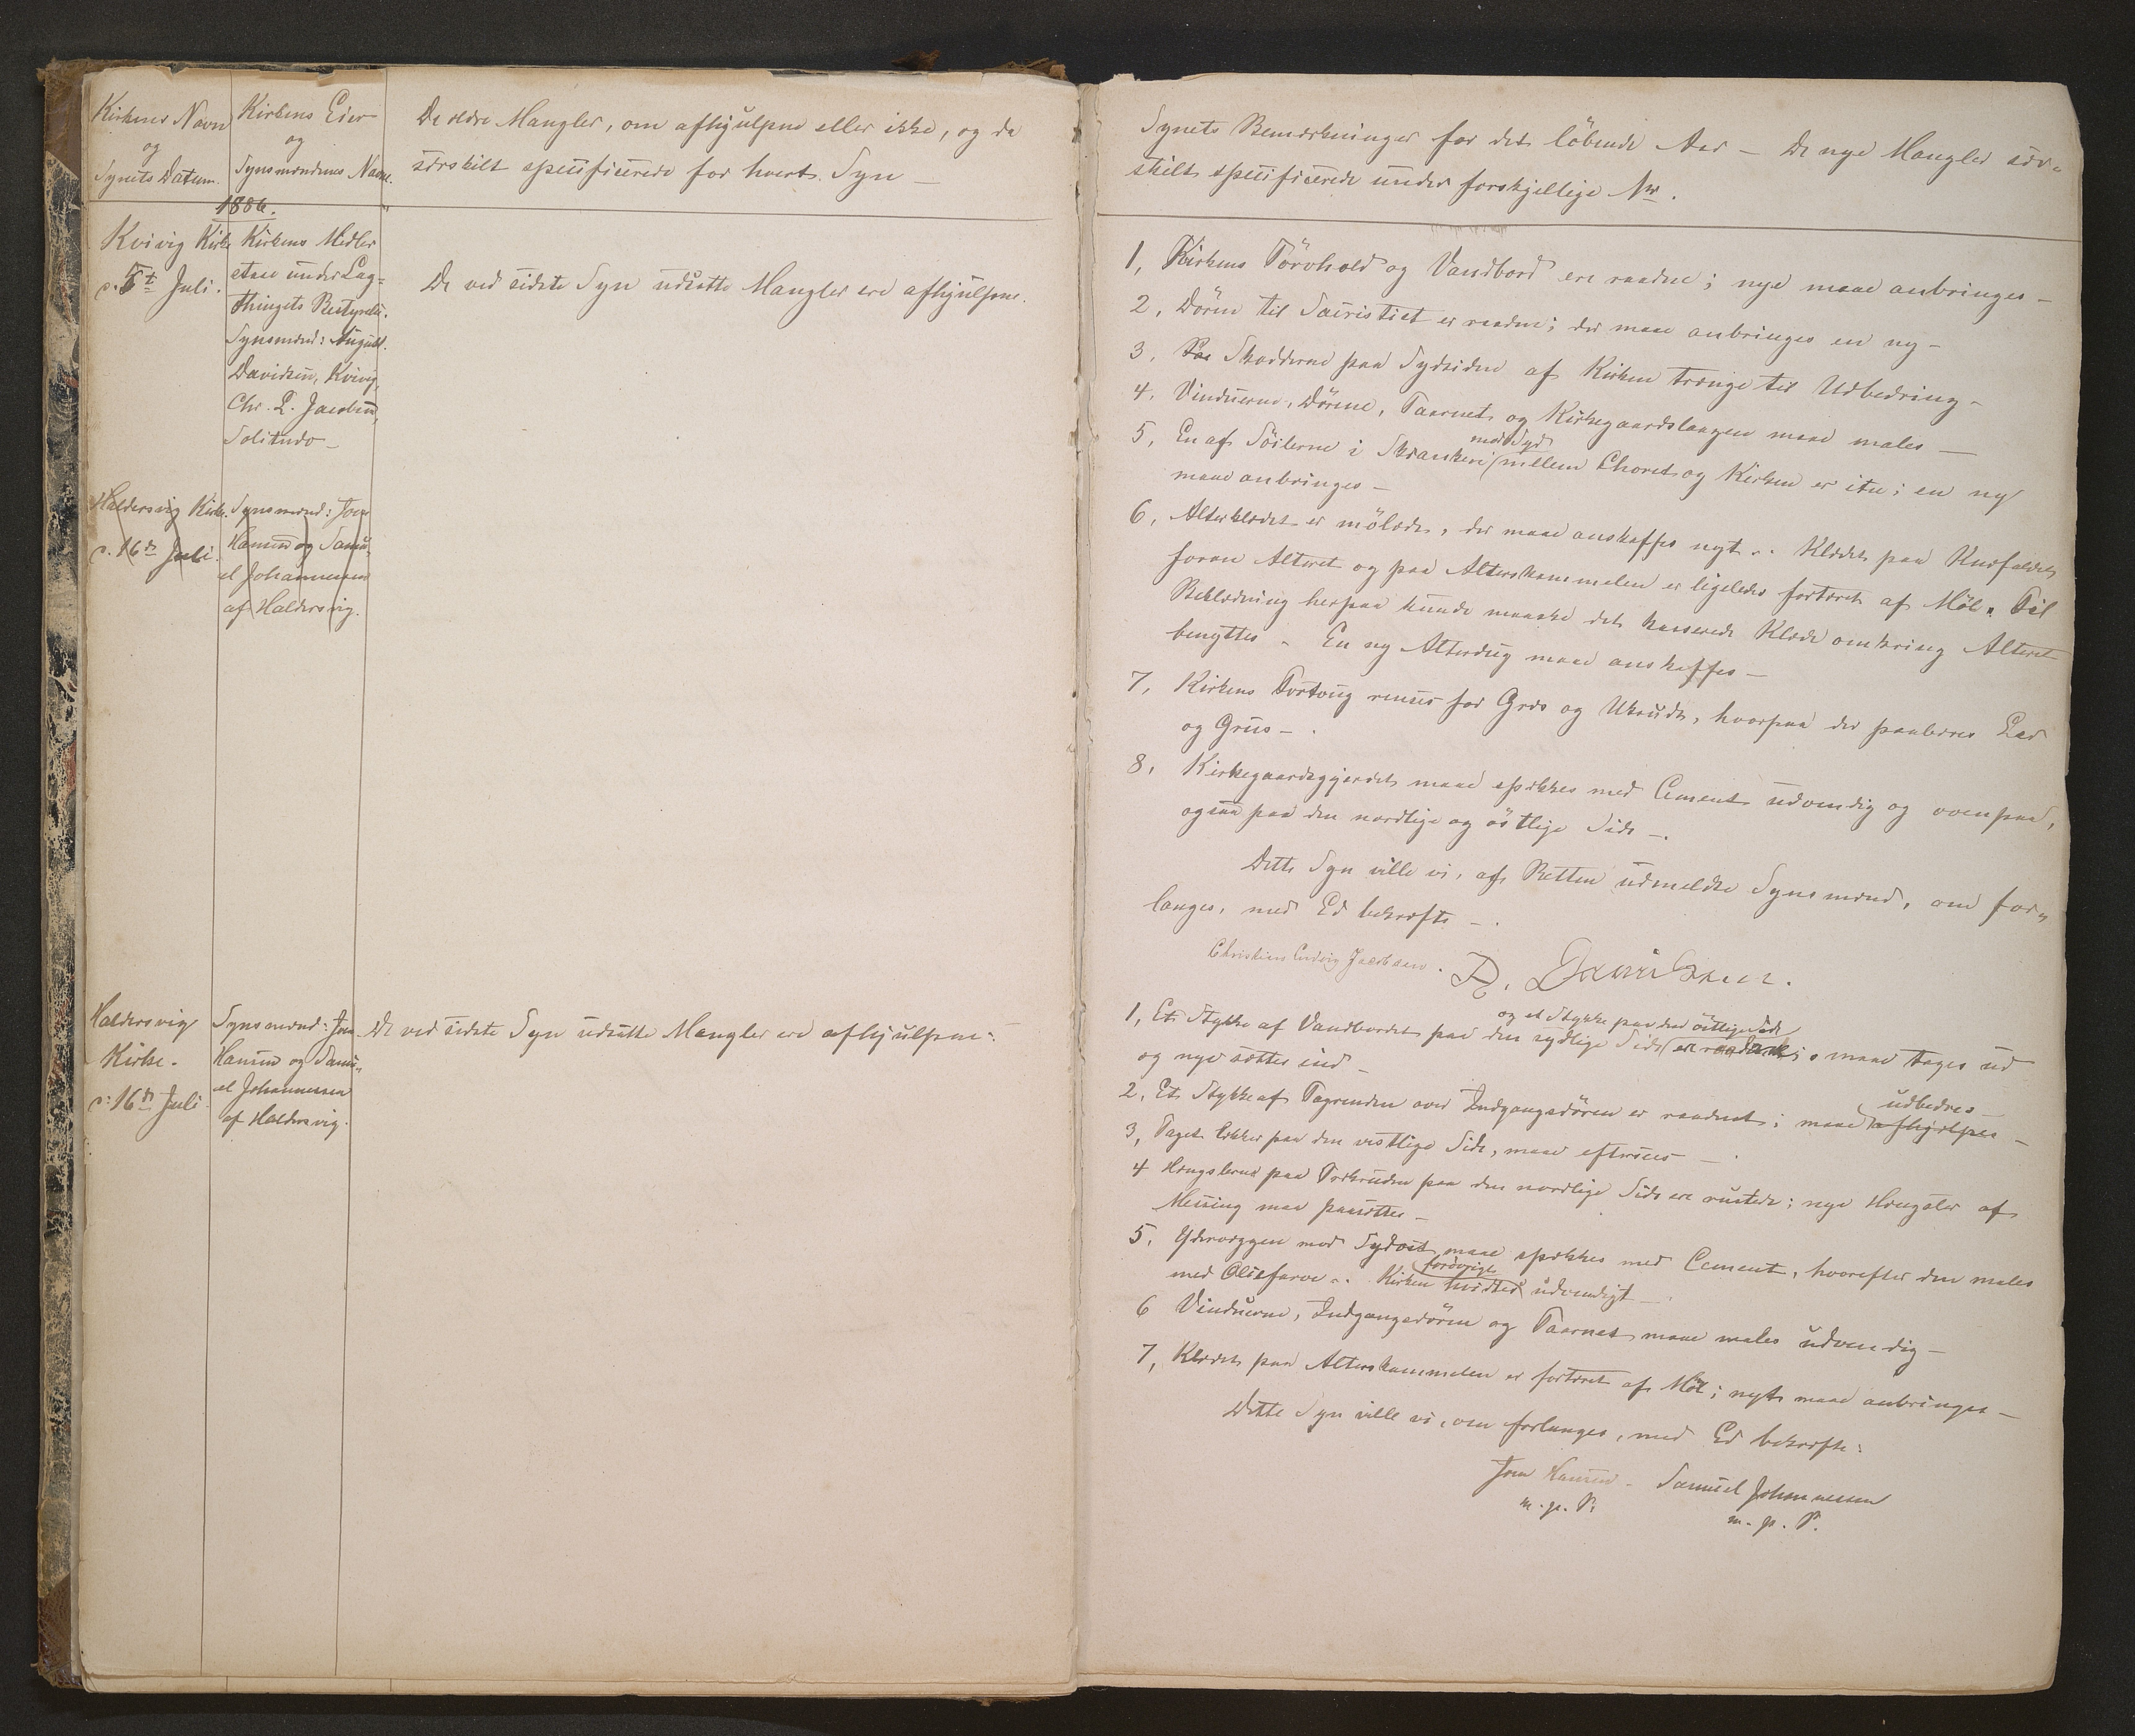 Kirkens Navn
og
Synets Datum.
Kirkens Eier
og
Synsmændenes Navne.
De ældre Mangler, om afhjulpne eller ikke, og da
særskilt specificerede for hvert Syn —
1886.
Kvivig Kirke
d. 5t Juli.
Kirkens Midler
staae under Lag-
thingets Bestyrelse.
Synsmænd: August.
Davidsen, Kvivig,
Chr. L. Jacobsen,
Solitudo —
De ved sidste Syn udsatte Mangler ere afhjulpne.
Haldersvig Kirke.
d. 16de Juli.
Synsmænd: Joen
Hansen og Samu-
el Johannessen
af Haldersvig.
Haldersvig
Kirke.
d. 16de Juli
Synsmænd: Joen
Hansen og Samu-
el Johannessen
af Haldersvig.
De ved sidste Syn udsatte Mangler ere afhjulpne.
Synets Bemærkninger for det löbende Aar — De nye Mangler sær-
skilt specificerede under forskjellige Nr.
1, Kirkens Törvhold og Vandbord ere raadne; nye maae anbringes —
2, Dören til Sacristiet er raaden; der maae anbringes en ny —
3, Skodderne paa Sydsiden af Kirken trænge til Udbedring —
4, Vinduerne, Dörene, Taarnet og Kirkegaardslaagen maae males —
5, En af Söilerne i Skrankeri mod Syd mellem Choret og Kirken er itu; en ny
maae anbringes —
6, Alterklædet er mölædt, der maae anskaffes nyt. Klædet paa Knæfaldet
foran Alteret og paa Alterskammelen er ligeledes fortæret af Möl. Til
Beklædning herpaa kunde maaske det kasserede Klæde omkring Alteret
benyttes. En ny Alterdug maae anskaffes —
7, Kirkens Fortoug renses for Græs og Ukrudt, hvorpaa der paabæres Leer
og Gruus —
8, Kirkegaardsgjærdet maae spækkes med Cement udvendig og ovenpaa,
ogsaa paa den nordlige og östlige Side —.
Dette Syn ville vi, af Retten udmeldte Synsmænd, om for-
langes, med Ed bekræfte —.
Christian Ludvig Jacobsen. D. Davidsen.
1, Et Stykke af Vandbordet paa den sydlige Side og et Stykke paa den östlige Side ere raadent; maae tages ud
og nye sættes ind —
2, Et Stykke af Tagrenden over Indgangsdören er raadnet; maae afhjælpes udbedres —
3, Taget lækker paa den vestlige Side, maae eftersees —
4 Hængslerne paa den nordlige Side ere rustede; nye Hængsler af
Messing maa paasættes —
5, Ydervæggen mod Sydost maae spækkes med Cement, hvorefter den males
med Oliefarve. Kirken forövrigt hvidtes udvendigt —
6 Vinduerne, Indgangsdören og Taarnet maae males udvendig —
7, Klædet paa Alterskammelen er fortæret af Möl; nyt maae anbringes —
Dette Syn ville vi, om forlanges, med Ed bekræfte:
Joen Hansen — Samuel Johannessen
m. p. P. m. p. P.